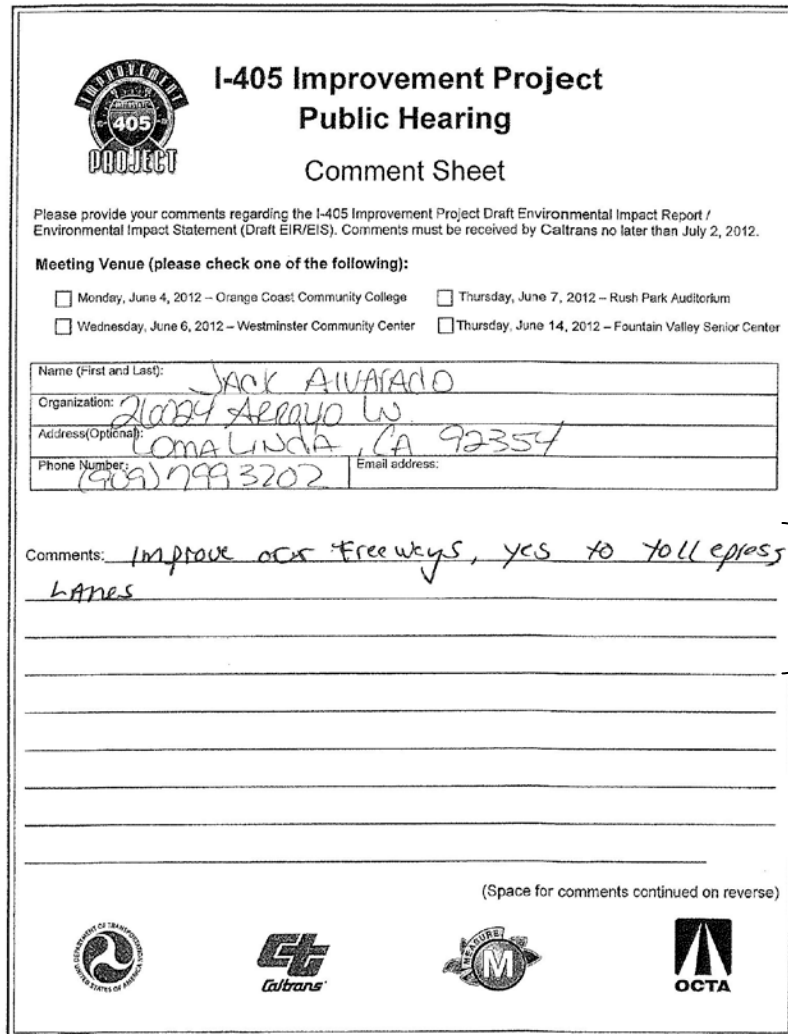 IMPROVEMENT
INTERSTATE
405
PROJECT
I-405 Improvement Project
Public Hearing
Comment Sheet
Please provide your comments regarding the I-405 Improvement Project Draft Environmental Impact Report /
Environmental Impact Statement (Draft EIR/EIS). Comments must be received by Caltrans no later than July 2, 2012.
Meeting Venue (please check one of the following):
Monday, June 4, 2012 – Orange Coast Community College
Thursday, June 7, 2012 – Rush Park Auditorium
Wednesday, June 6, 2012 – Westminster Community Center
Thursday, June 14, 2012 – Fountain Valley Senior Center
Name (First and Last): JACK AlVArADO
Organization: Arroyo LN
Address(Optional): LOMA LINDA, CA 92354
Phone Number: (909) 799 3202
Email address:
Comments: Improve our Freeways, yes to toll epress
LAnes
(Space for comments continued on reverse)
DEPARTMENT OF TRANSPORTATION
UNITED STATES OF AMERICA
Ct
Caltrans
MEASURE
M
OCTA